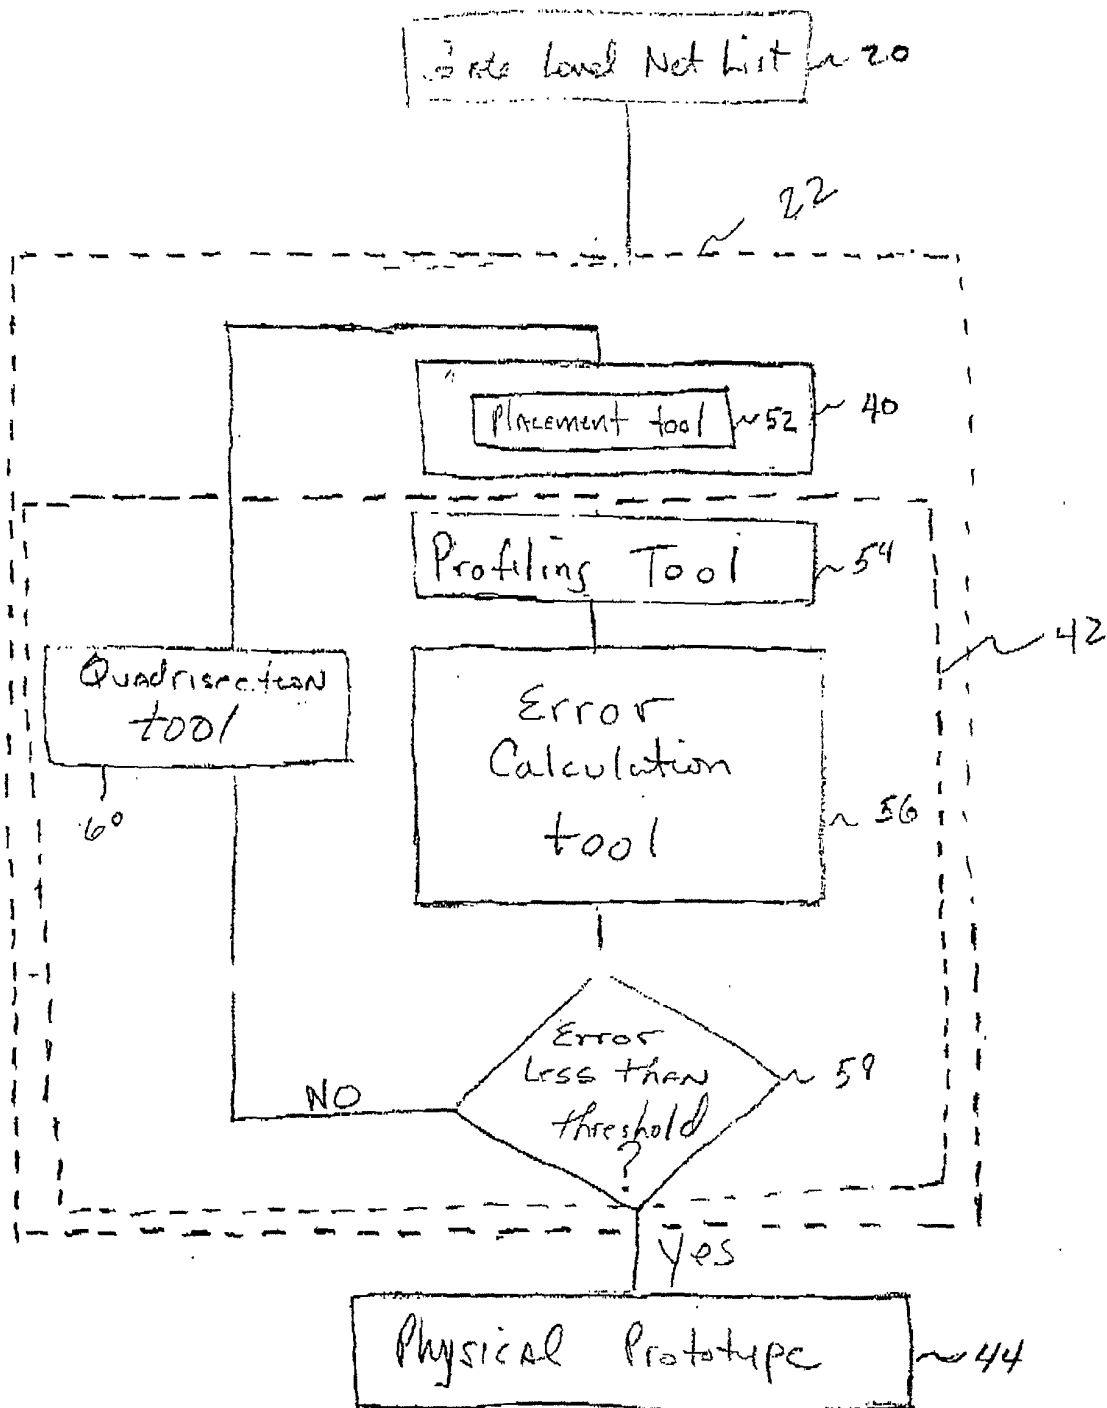 Gate Level Net List 20
22
Placement tool 52 40
Profiling Tool 54
42
Quadrisection
tool
60
Error
Calculation
tool
56
Error
Less than
threshold
?
NO
Yes
Physical Prototype 44